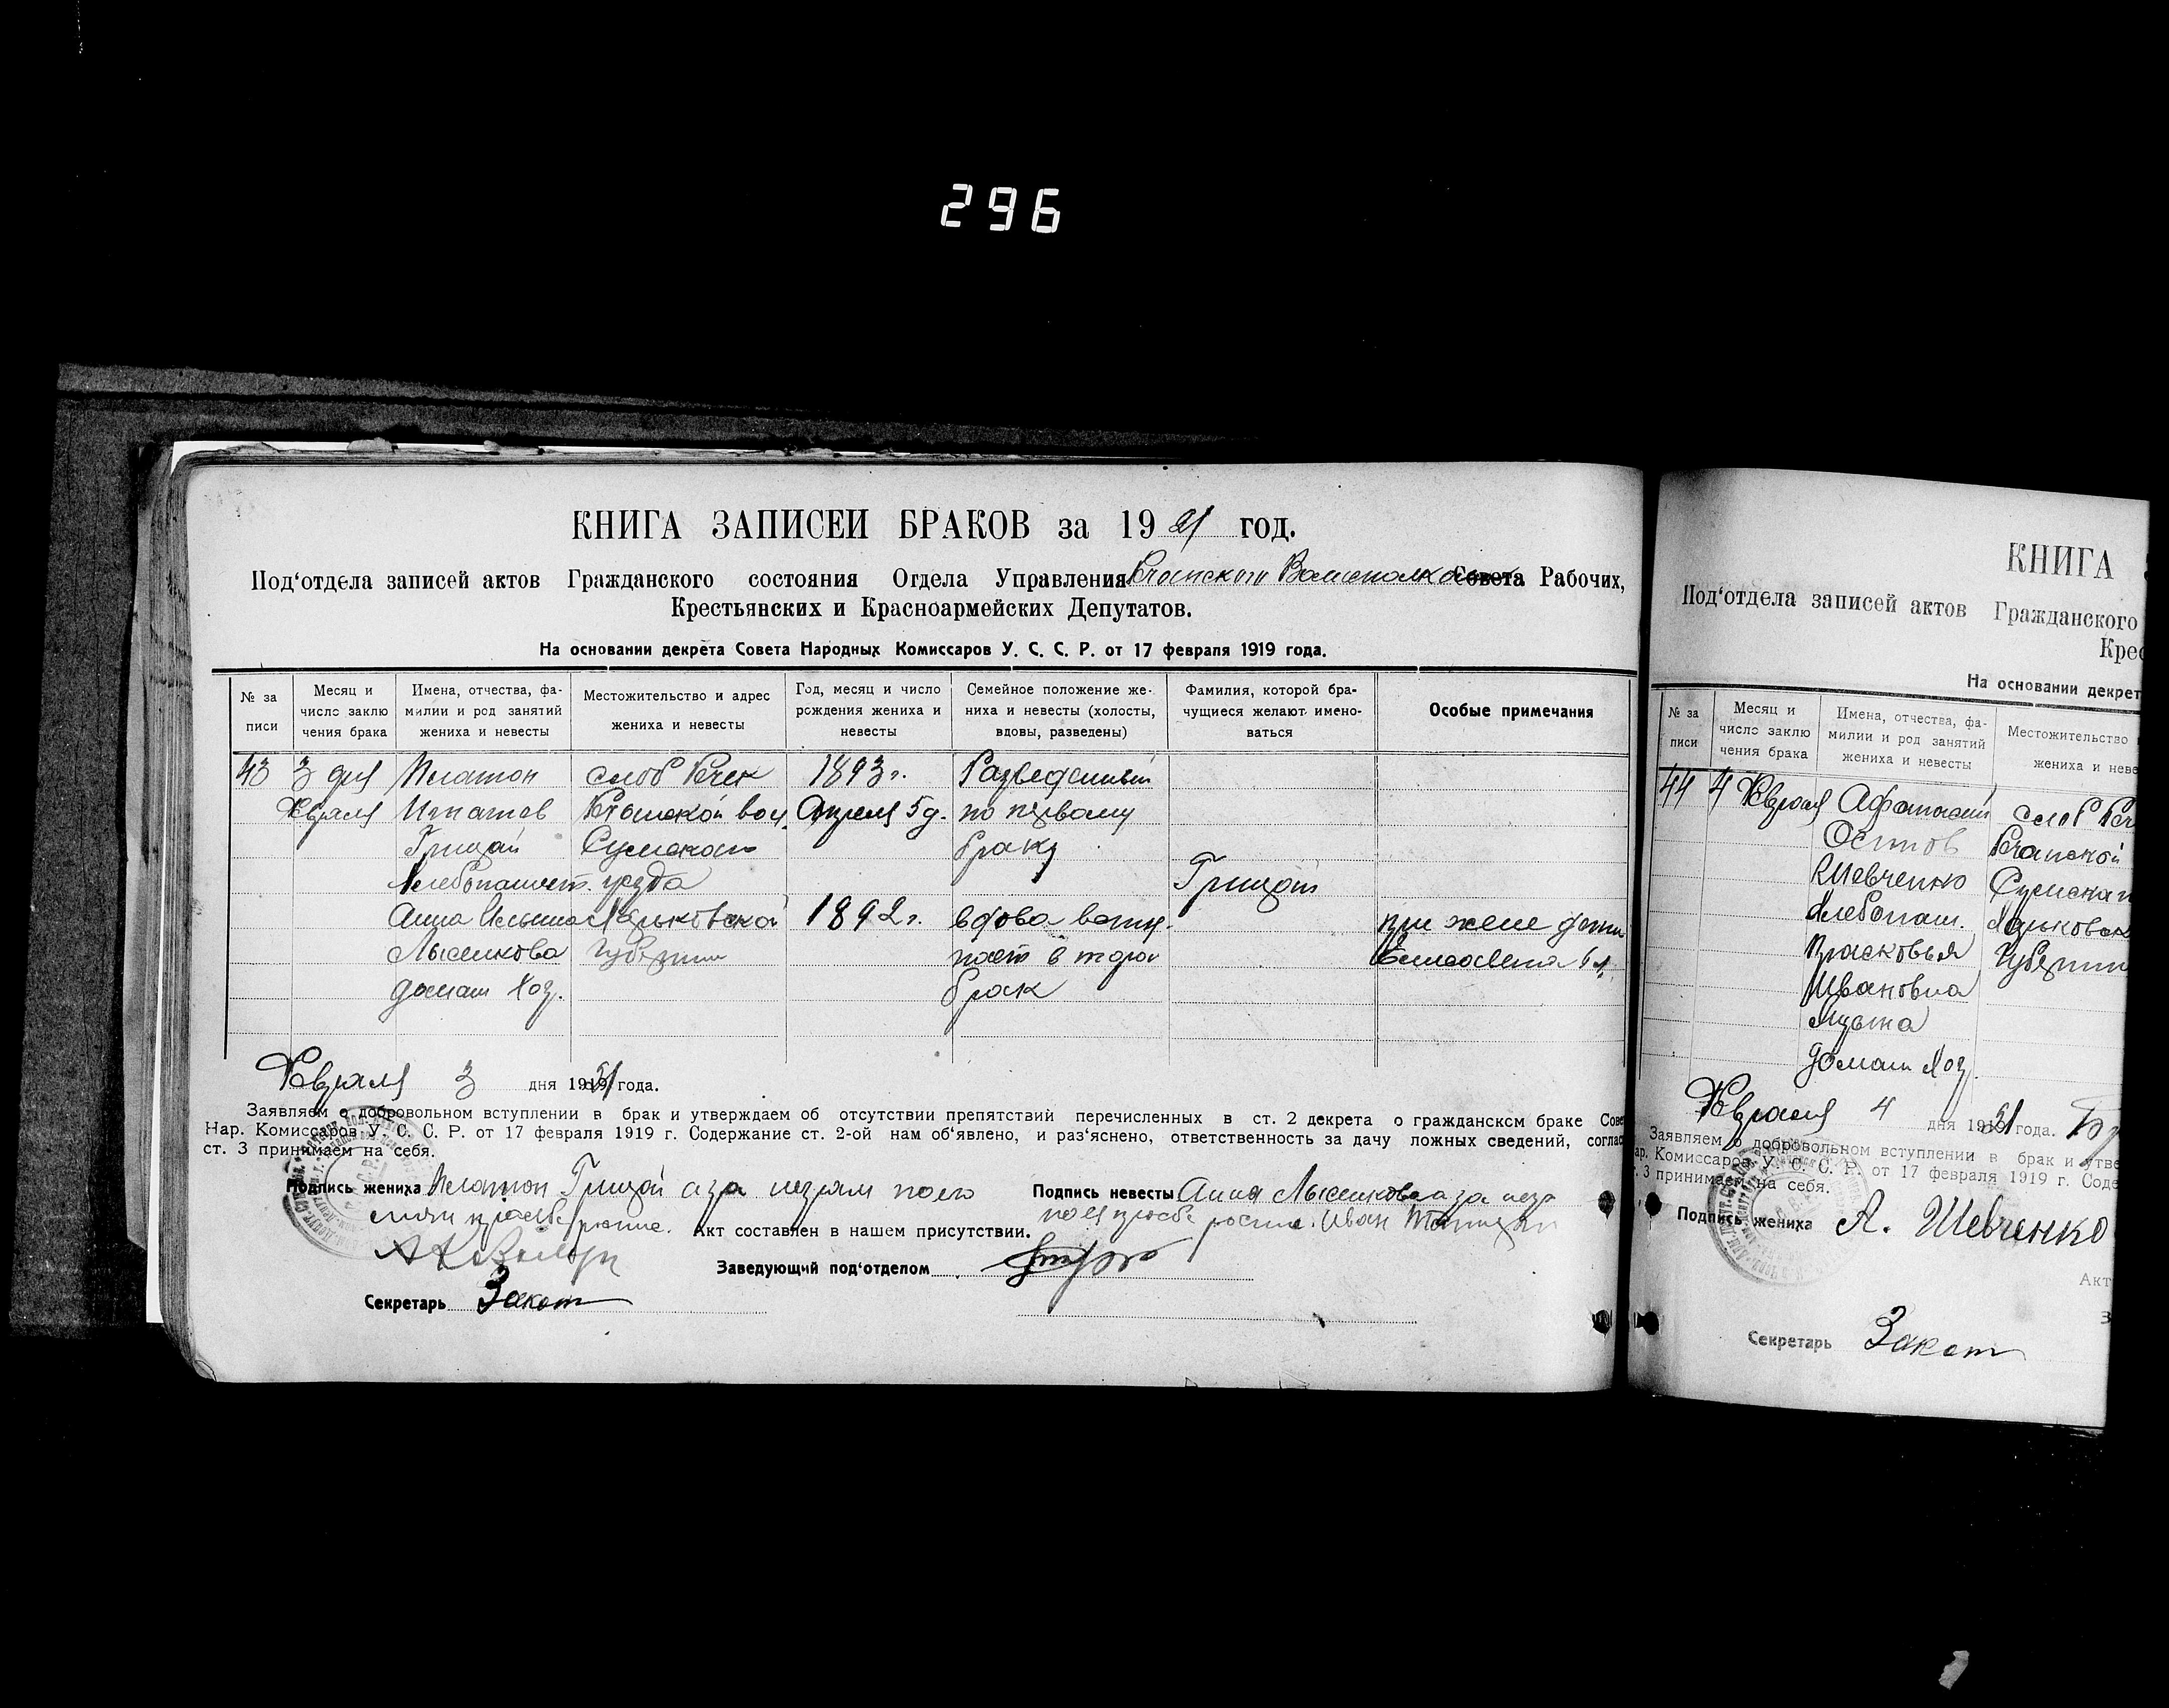 296
КНИГА ЗАПИСЕЙ БРАКОВ за 1921 год.
Под‘отдела записей актов Гражданского состояния Отдела Управления Совета Рабочих,
Крестьянских и Красноармейских Депутатов.
На основании декрета Совета Народных Комиссаров У. С. С. Р. от 17 февраля 1919 года.
№ за писи
Месяц и число заклю чения брака
Имена, отчества, фа- милии и род занятий жениха и невесты
Местожительство и адрес жениха и невесты
Год, месяц и число рождения жениха и невесты
Семейное положение же- ниха и невесты (холосты, вдовы, разведены)
Фамилия, которой бра- чущиеся желают имено- ваться
Особые примечания
43 3 дня Платон слоб Речек 1893 г. Разведенный
Февраля Игнатов Речанской вол. Апреля 5 д. по первому
Грицай Сумского браку
Хлебопашест. уезда Грицай
Анна Харьковской 1892 г. вдова вступ. при жене дети
Лысенкова губернии пает в торой Елисавета 6 л.
домаш хоз. брак
Февраля 3 дня 1921 года.
Заявляем о добровольном вступлении в брак и утверждаем об отсутствии препятствий перечисленных в ст. 2 декрета о гражданском браке Сове
Нар. Комиссаров У. С. С. Р. от 17 февраля 1919 г. Содержание ст. 2-ой нам об‘явлено, и раз‘яснено, ответственность за дачу ложных сведений, соглас
ст. 3 принимаем на себя.
Подпись жениха Платон Грицай а за негрям по его
Подпись невесты Анна Лысенкова а за негр
по ея прозбе роспис. Иван
Акт составлен в нашем присутствии.
Заведующий под‘отделом
Секретарь Закот
КНИГА
Под‘отдела записей актов Гражданского
Крес
На основании декрет
№ за писи
Месяц и число заклю чения брака
Имена, отчества, фа- милии и род занятий жениха и невесты
Местожительство жениха и неве
44 4 Февраля Афанасий слоб Реч
Осипов Речанской
Шевченко Сумска
Хлебопаш. Харьковск
Прасковья Губернии
Ивановна
домаш хоз.
Февраля 4 дня 1921 года.
Заявляем о добровольном вступлении в брак и утве
ар. Комиссаров У. С. С. Р. от 17 февраля 1919 г. Соде
. 3 принимаем на себя.
Подпись жениха А. Шевченко
Акт
З
Секретарь Закот